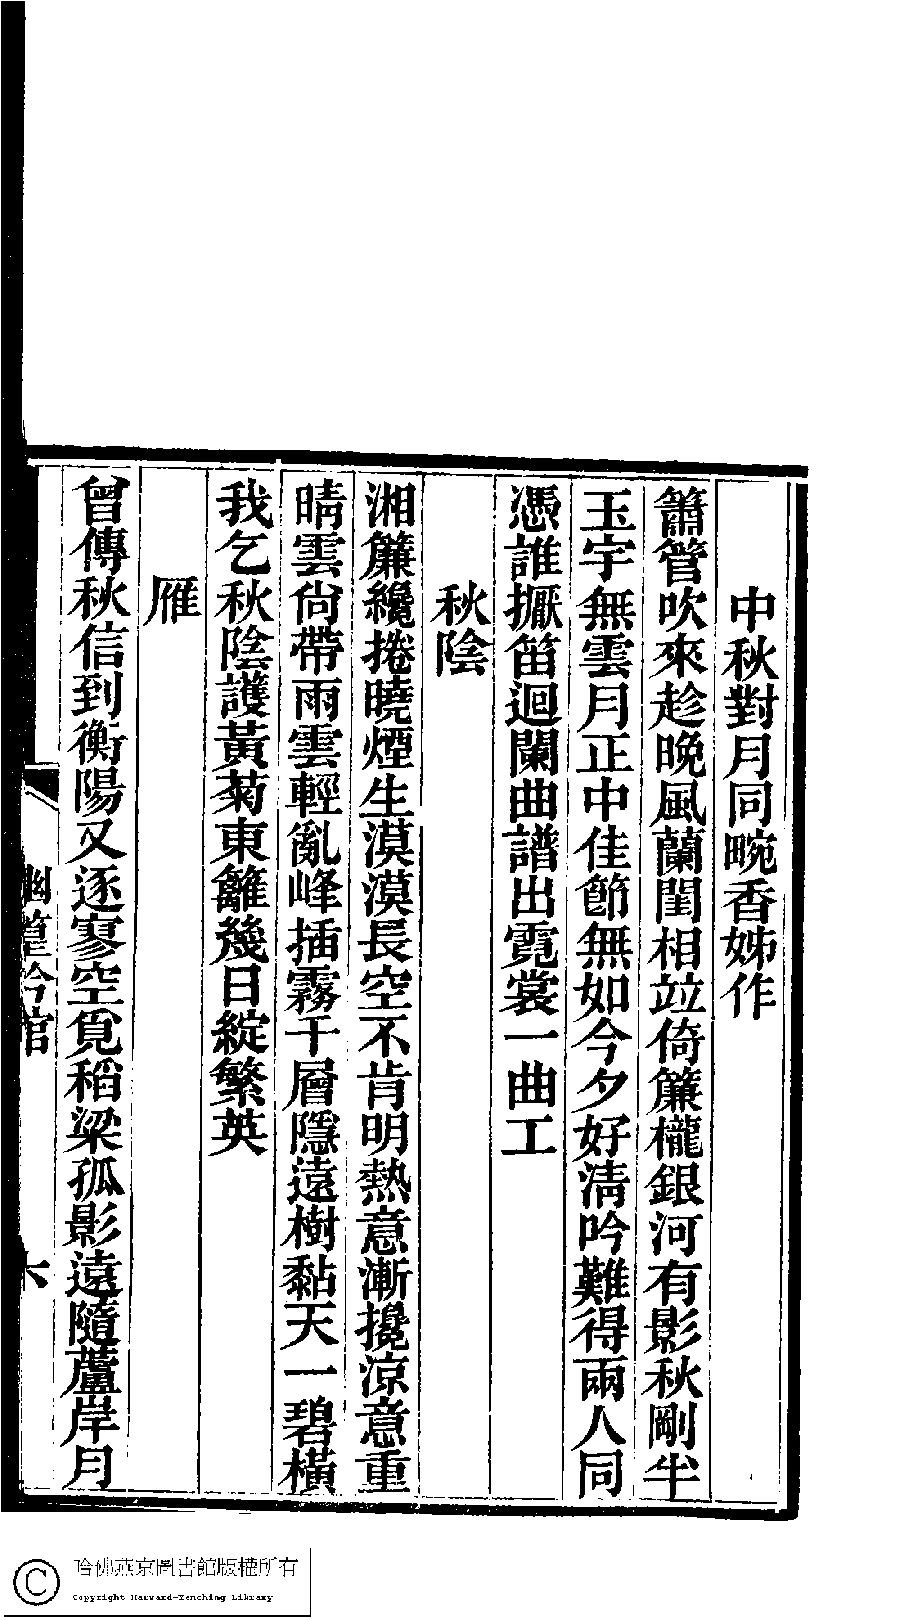 中秋對月同畹香姊作
簫管吹來趁晚風蘭閨相竝倚簾櫳銀河有影秋剛半
玉宇無雲月正中佳節無如今夕好淸吟難得兩人同
憑誰擫笛迴闌曲譜出霓裳一曲工
秋陰
湘簾纔捲曉煙生漠漠長空不肯明熱意漸攙涼意重
晴雲尙帶雨雲輕亂峰插霧千層隱遠樹黏天一碧橫
我乞秋陰護黃菊東籬幾日綻繁英
雁
曾傳秋信到衡陽又逐寥空覓稻粱孤影遠隨蘆岸月
幽篁吟館
六
哈佛燕京圖書館版權所有
Copyright Harvard-Yenching Library